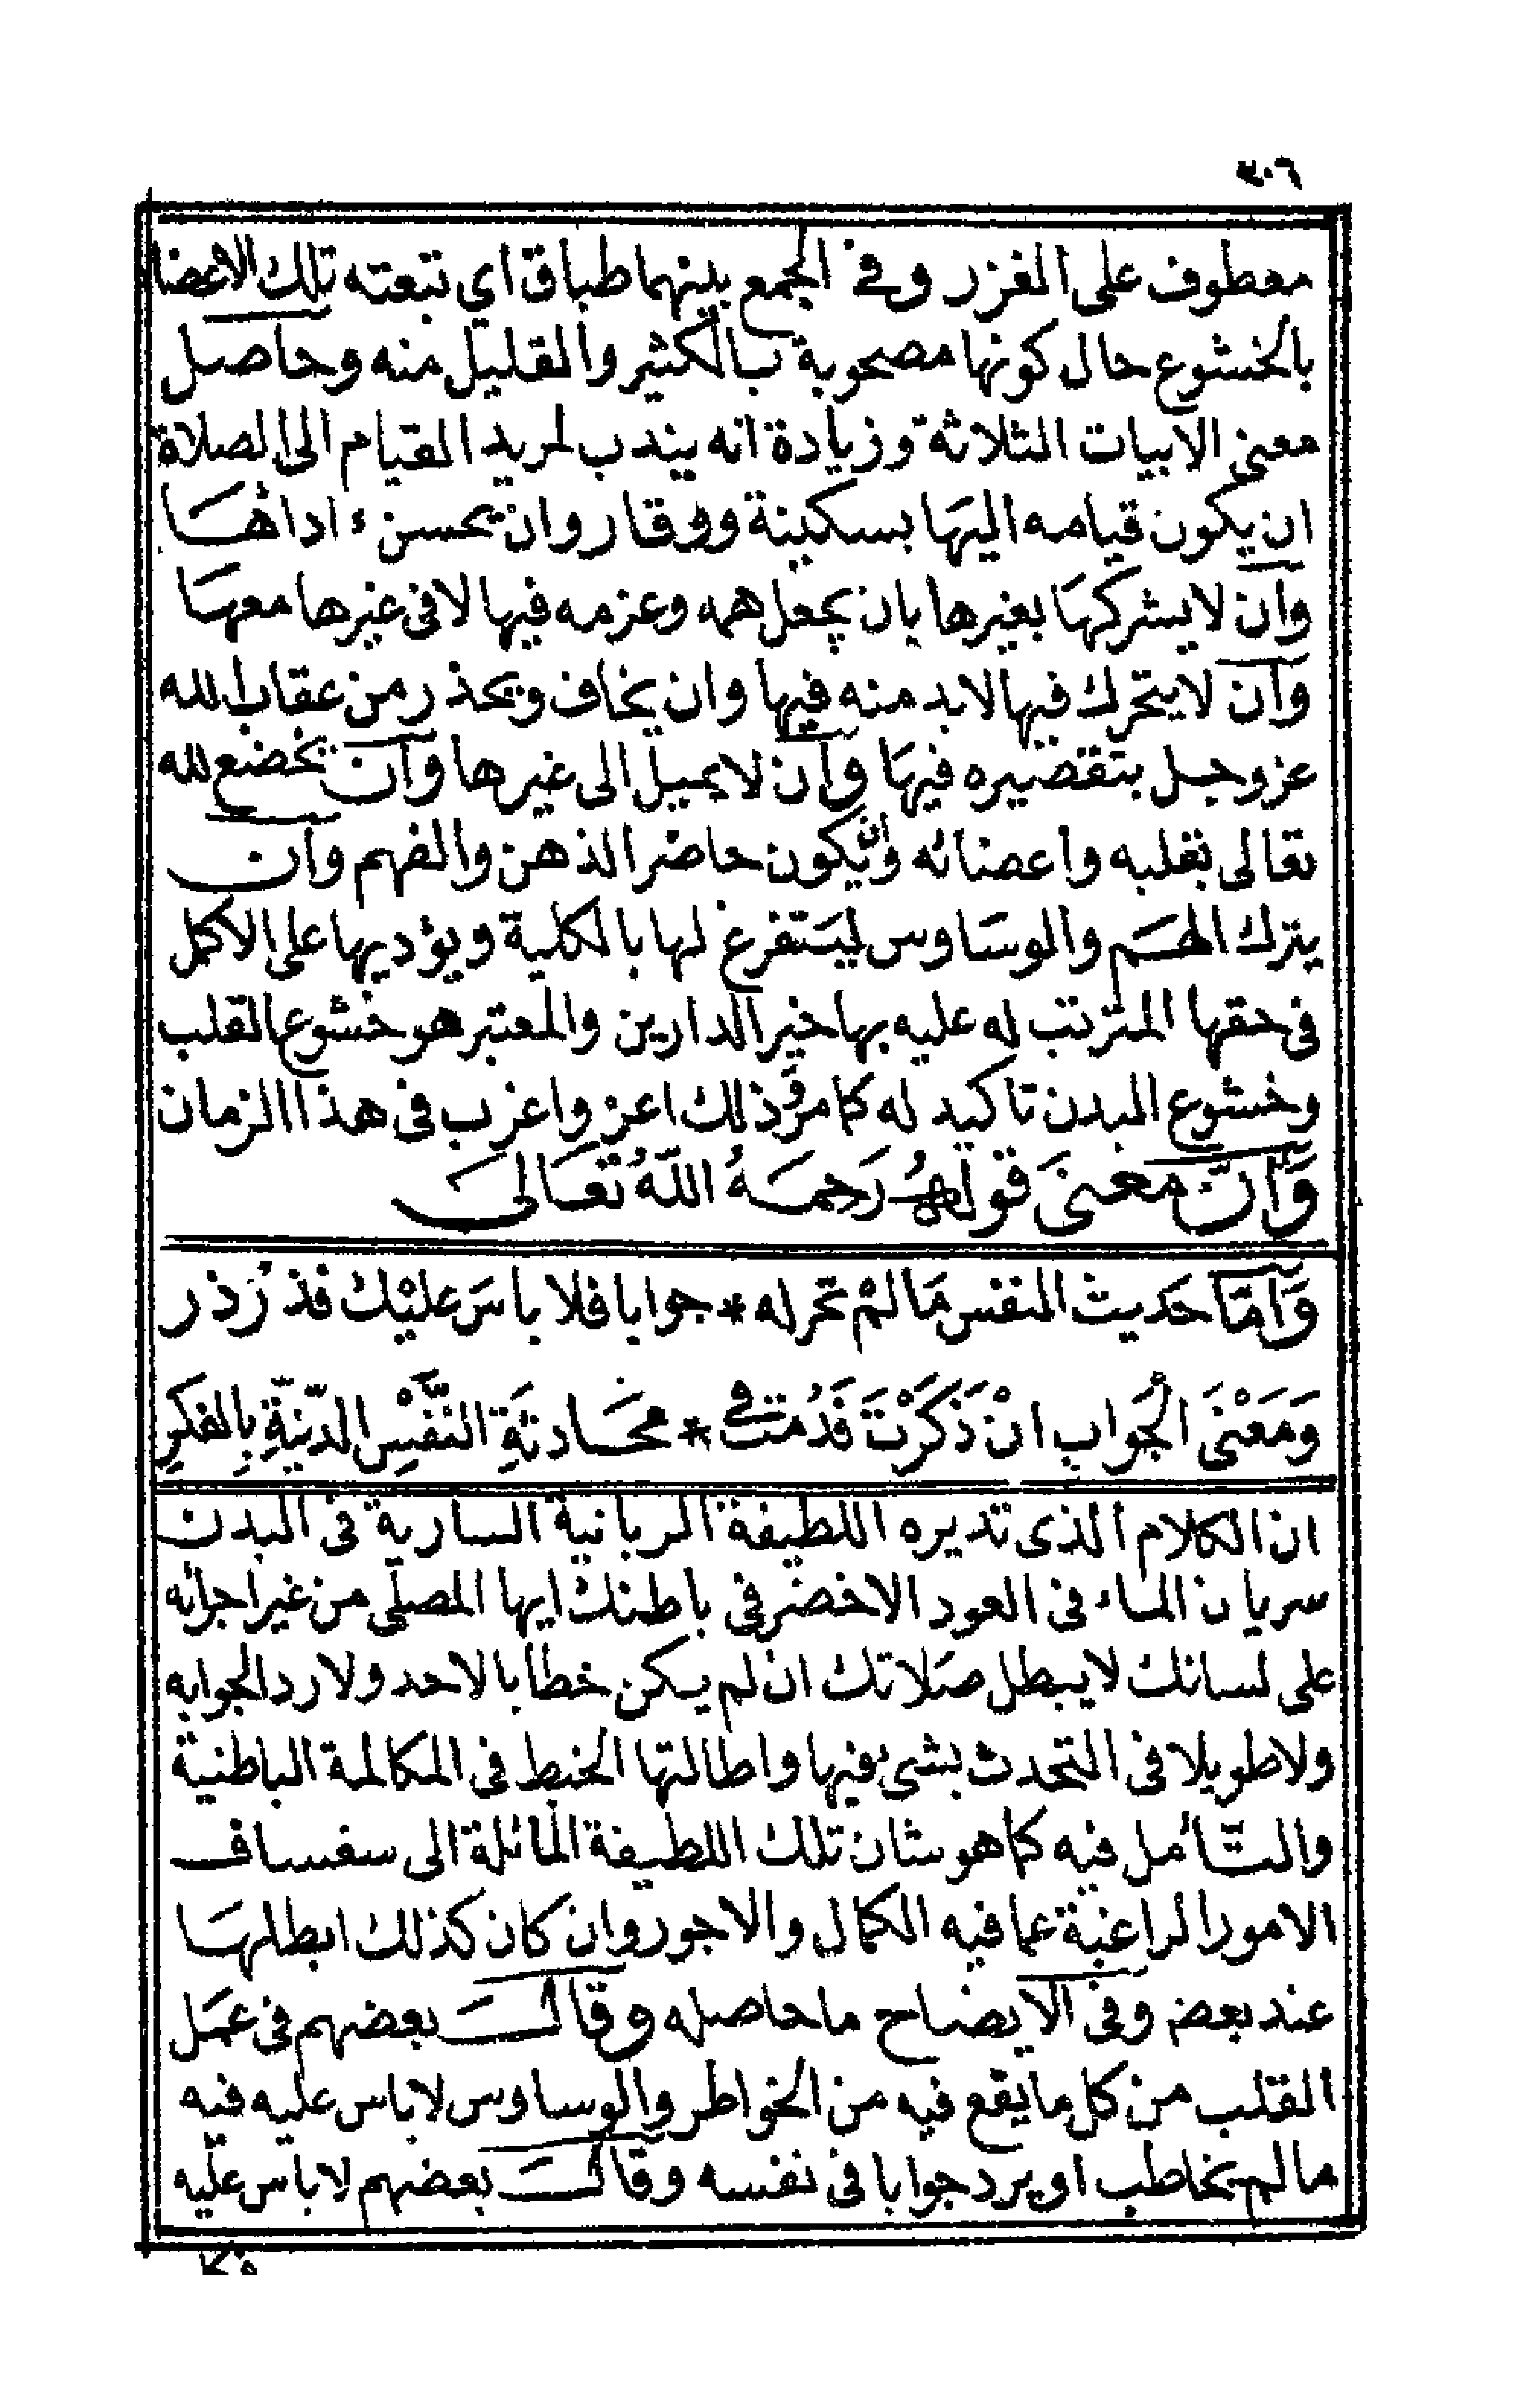 ٣٠٦
معطوف على الغزر وفي الجمع بينهما طباق اي تبعته تلك الاعضا
بالخشوع حال كونها مصحوبة بالكثير والقليل منه وحاصل
معنى الابيات الثلاثة وزيادة انه يندب لمريد القيام الى الصلاة
ان يكون قيامه اليها بسكينة ووقار وان يحسن اداءها
وان لا يشركها بغيرها بان يجعل همه وعزمه فيها لا في غيرها معها
وان لا يتحرك فيها لابد منه فيها وان يخاف ويحذر من عقاب الله
عز وجل بتقصيره فيها وان لا يميل الى غيرها وان يخضع لله
تعالى بقلبه واعضائه وان يكون حاضر الذهن والفهم وان
يترك الهم والوساوس ليتفرغ لها بالكلية ويؤديها على الاكمل
في حقها المترتب له عليه بها خير الدارين والمعتبر هو خشوع القلب
وخشوع البدن تاكيد له كما مر وذلك اعز واغرب في هذا الزمان
وَأن معنى قوله رَحمَهُ اللّهُ تعَالى
وَأمّا حَديث النفس مَا لمْ تحر له * جوابا فلا باسَ عليْك فذر ذر
وَمَعْنَى الجَوابِ انْ ذَكَرْتَ قَدُمت في * محَادثةِ النَّفْسِ الدّنيّةِ بِالفكرِ
ان الكلام الذى تديره اللطيفة الربانية السارية فى البدن
سريان الماء فى العود الاخضر فى باطنك ايها المصلى من غير اجرائه
على لسانك لا يبطل صلاتك ان لم يكن خطابا لاحد ولا رد الجوابه
ولا طويلا فى التحدث بشئ فيها واطالتها الخبط فى المكالمة الباطنية
والتّأمل فيه كما هو شان تلك اللطيفة المائلة الى سفساف
الامور الراغبة عما فيه الكمال والاجور وان كان كذلك ابطلها
عند بعض وفى الايضاح ما حاصله وقال بعضهم فى عمَل
القلب من كل ما يقع فيه من الخواطر والوساوس لا باس عليه فيه
ما لم يخاطب او يرد جوابا فى نفسه وقال بعضهم لا باس عليه